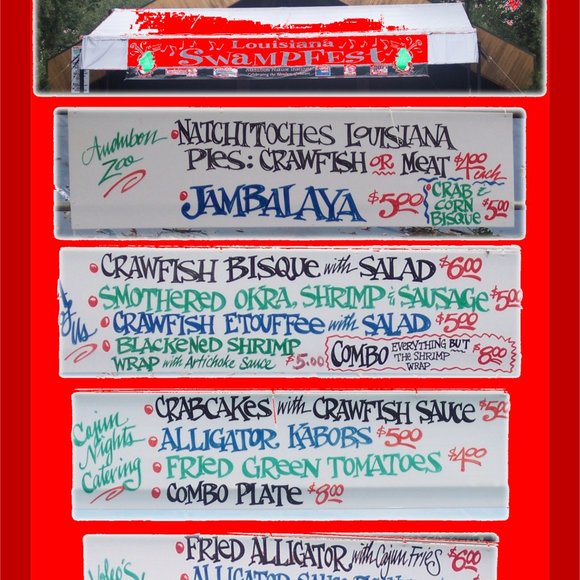 Louisiana
SWAMPFEST
Audubon
Zoo
• NATCHITOCHES LOUISIANA
PIES: CRAWFISH OR MEAT $4.00 each
• JAMBALAYA $5.00
CRAB &
CORN
BISQUE $5.00
• CRAWFISH BISQUE with SALAD $6.00
• SMOTHERED OKRA, SHRIMP & SAUSAGE $5.00
• CRAWFISH ETOUFFEE with SALAD $5.00
• BLACKENED SHRIMP
WRAP with Artichoke Sauce $5.00
COMBO EVERYTHING BUT
THE SHRIMP
WRAP $8.00
Cajun
Nights
Catering
• CRABCAKES with CRAWFISH SAUCE $5.00
• ALLIGATOR KABOBS $5.00
• FRIED GREEN TOMATOES $4.00
• COMBO PLATE $8.00
• FRIED ALLIGATOR with Cajun Fries $6.00